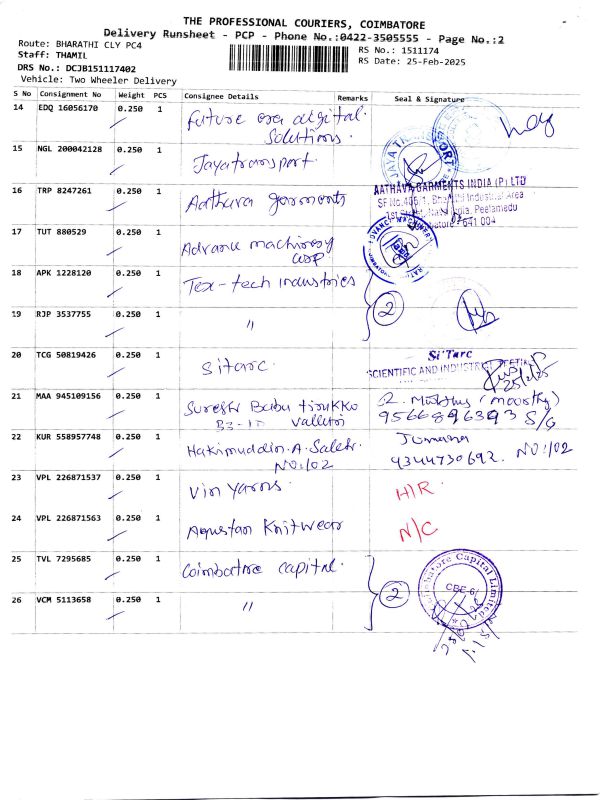 THE PROFESSIONAL COURIERS, COIMBATORE
Delivery Runsheet - PCP - Phone No.:0422-3505555 - Page No.:2
Route: BHARATHI CLY PC4
RS No.: 1511174
Staff: THAMIL
RS Date: 25-Feb-2025
DRS No.: DCJB151117402
Vehicle: Two Wheeler Delivery
S No Consignment No Weight PCS Consignee Details Remarks Seal & Signature
14 EDQ 16056170 0.250 1 Future era digital
Solutions.
15 NGL 200042128 0.250 1 Jayatransport. JAYA TRANSPORT
16 TRP 8247261 0.250 1 Aathava garments
AATHAVA GARMENTS INDIA (P) LTD
SF No.406/1, Bharathi Industrial Area
Peelamedu
641 004
17 TUT 880529 0.250 1 Advance machinery
ADVANCE MACHINERY
18 APK 1228120 0.250 1 Tex-tech industries
2
19 RJP 3537755 0.250 1 "
20 TCG 50819426 0.250 1 Sitarc.
Si'Tarc
SCIENTIFIC AND INDUSTRIAL TESTING
25/2/25
21 MAA 945109156 0.250 1 Suresh Babu tirukko
B3-10 Valletri
R. Muthu (moorthy)
9566896393 S/G
22 KUR 558957748 0.250 1 Hakimuddin.A.Saleh.
NO:102
Jumana
9344730692. NO:102
23 VPL 226871537 0.250 1 Vin yarns. H/R.
24 VPL 226871563 0.250 1 Aqustan Knitwear N/C
25 TVL 7295685 0.250 1 Coimbatore capital.
2
Coimbatore Capital Limited
CBE-6
26 VCM 5113658 0.250 1 "